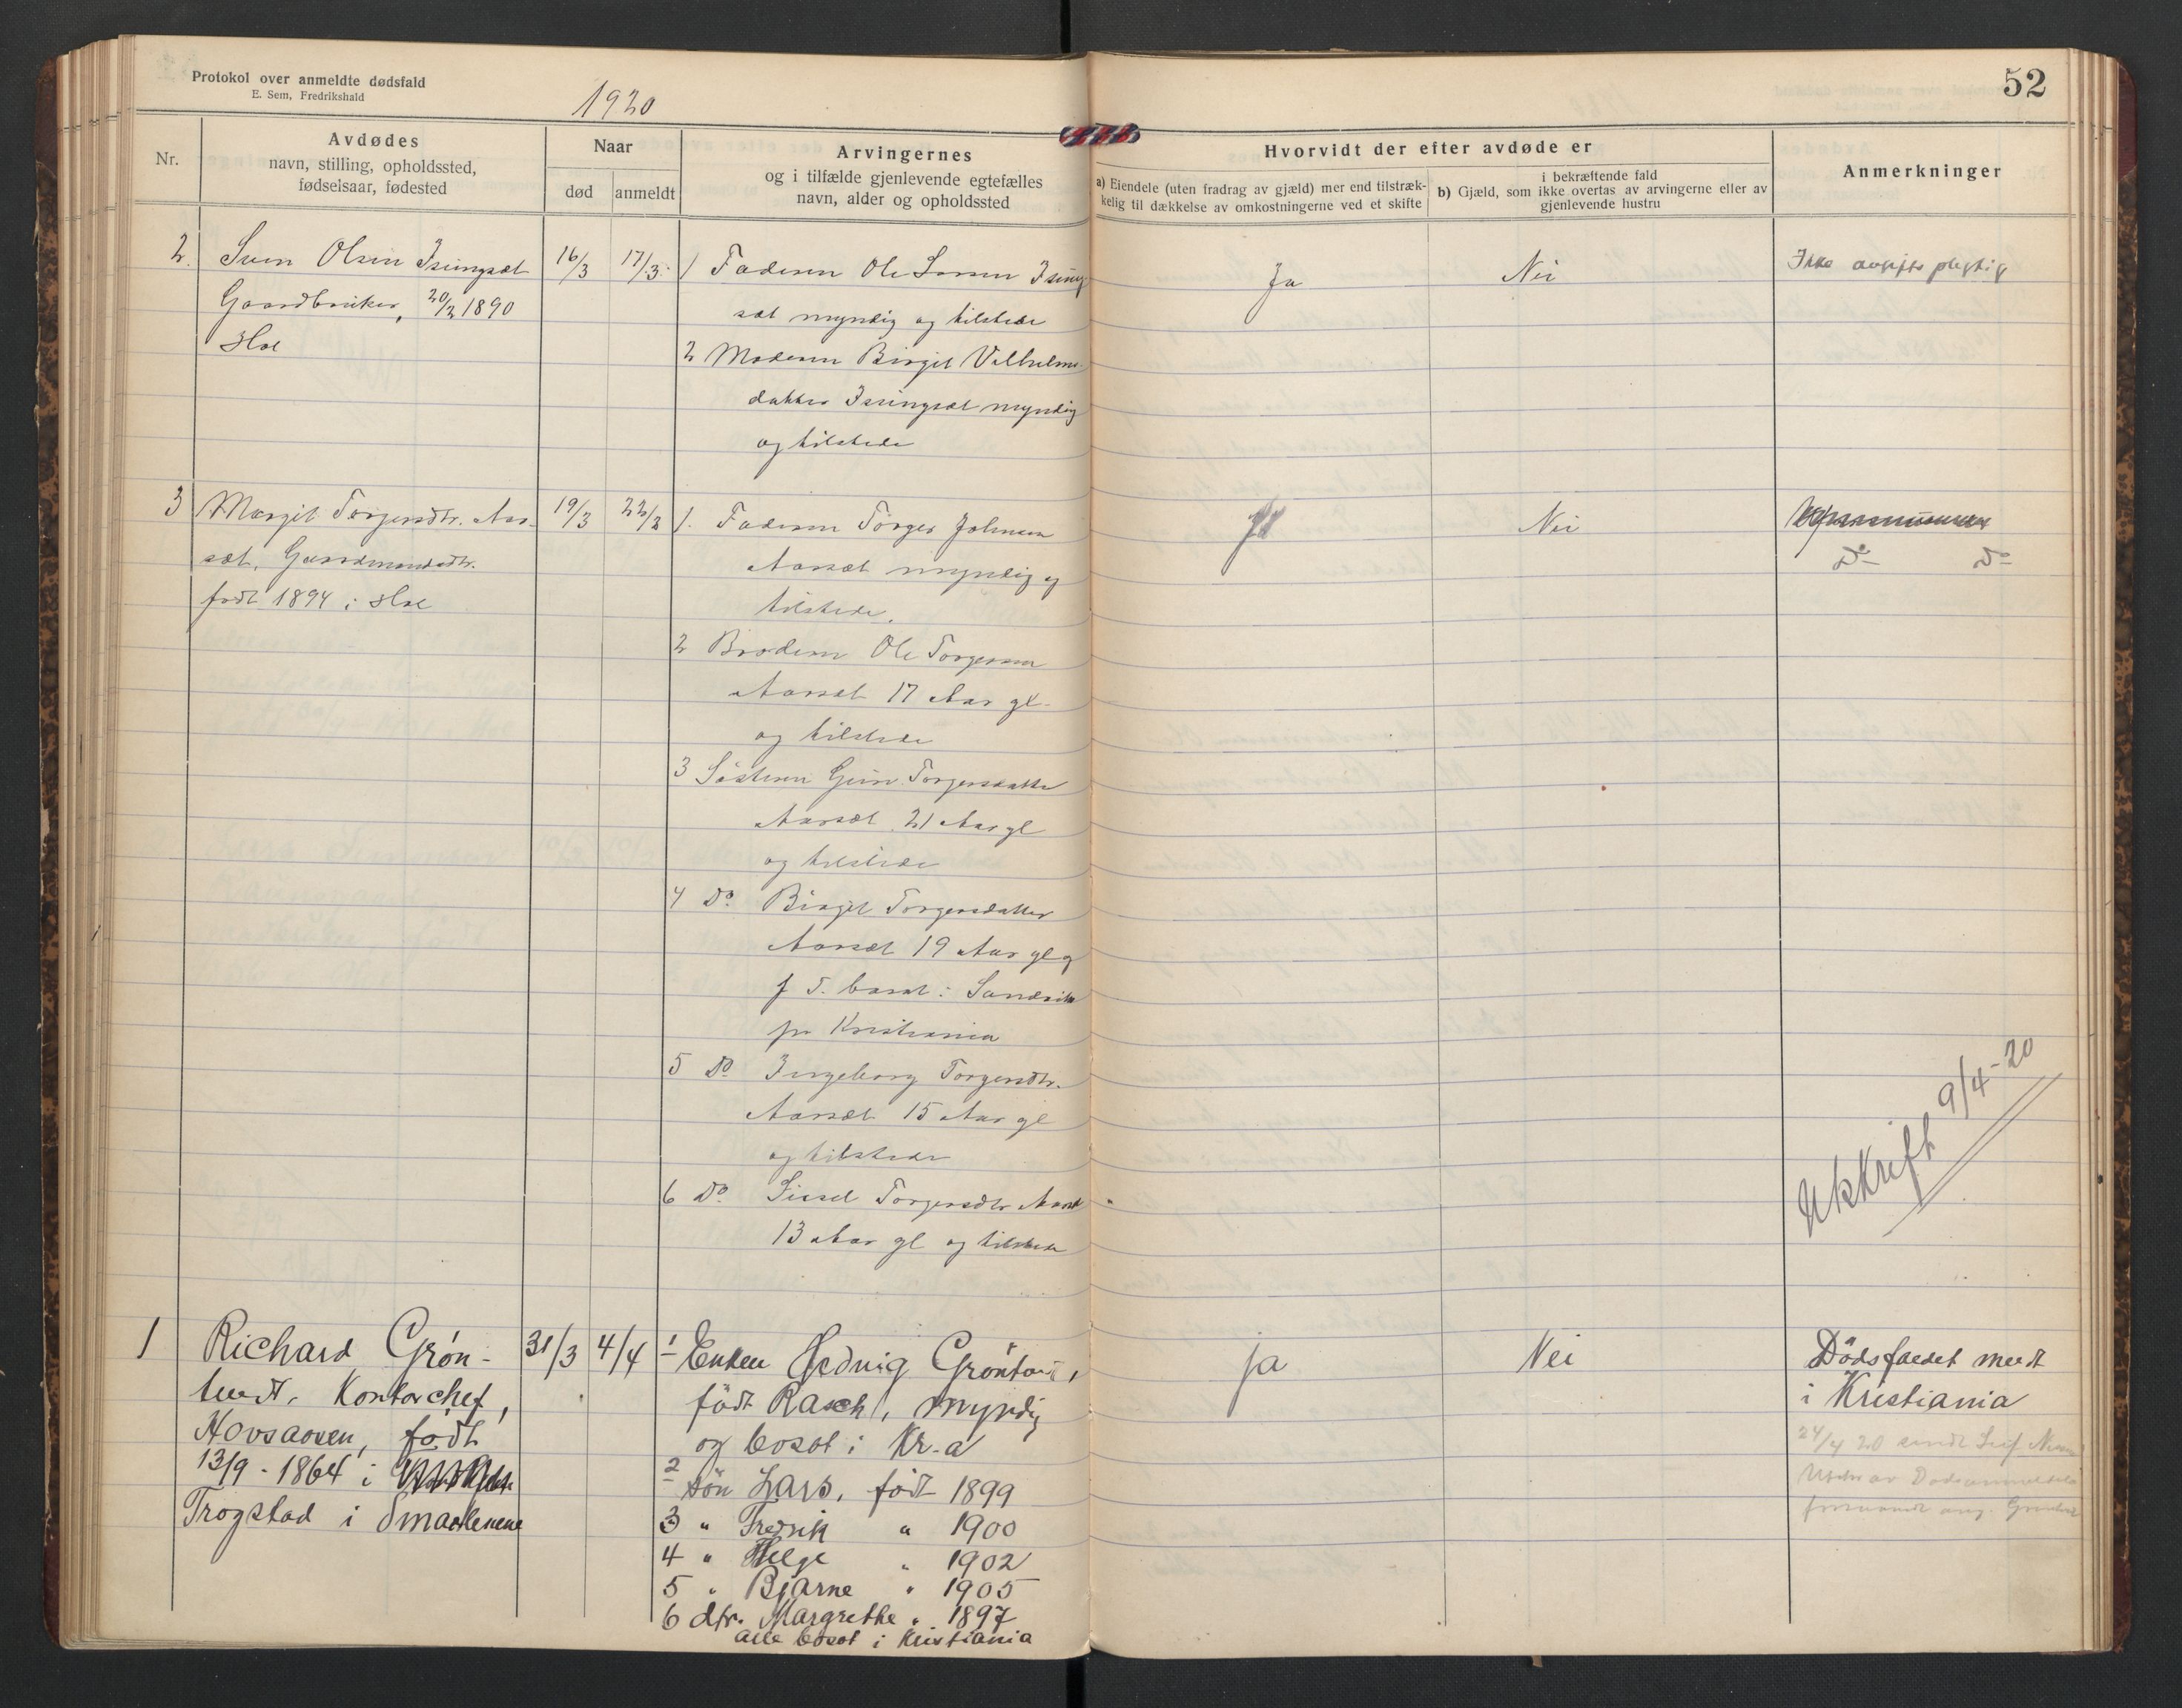 Protokol over anmeldte dødsfald
E. Sem, Fredrikshald
1920
52
Nr.
Avdødes
navn, stilling, opholdssted,
fødselsaar, fødested
Naar
død
anmeldt
Arvingernes
og i tilfælde gjenlevende egtefælles
navn, alder og opholdssted
Hvorvidt der efter avdøde er
a) Eiendele (uten fradrag av gjæld) mer end tilstræk-
kelig til dækkelse av omkostningerne ved et skifte
i bekræftende fald
b) Gjæld, som ikke overtas av arvingerne eller av
gjenlevende hustru
Anmerkninger
2. Sven Olsen
Gaardbruker, 1890
Hol
16/3
17/3
1 Faderen Ole
sæt myndig og tilstede
2 Moderen Birgit
datter myndig
og tilstede
Ja
Nei
Ikke avgiftspligtig
3 Margit Torgersdtr. Aar-
sæt, Gaardmandsdtr.
født 1894 i Hol
19/3
22/3
1. Faderen Torger Johnsen
Aarsæt myndig og
tilstede.
2 Broderen Ole Torgersen
Aarsæt 17 Aar gl.
og tilstede
3 Søsteren Torgersdatter
Aarsæt 21 Aar gl
og tilstede
4 Do Birgit Torgersdatter
Aarsæt 19 Aar gl og
f. T. bosat i Sandvika
pr Kristiania
5 Do Ingeborg Torgersdtr.
Aarsæt 15 Aar gl
og tilstede
6 Do Sissel Torgersdtr Aarsæt
13 Aar gl og tilstede
Ja
Nei
Do Do
Utskrift 9/4-20
1 Richard Grøn-
tvedt, Kontorchef,
Hovsaasen, født
13/9-1864 i
Trogstad i Smaalenene
31/3
4/4
1 Enken Hedvig
født Rasch, myndig
og bosat i Kr.a
2 søn Lars, født 1899
3 " Fredrik " 1900
4 " Helge " 1902
5 " Bjarne " 1905
6 dtr. Margrethe " 1897
alle bosat i Kristiania
ja
Nei
Dödsfaldet meldt
i Kristiania
24/4 20 sendt